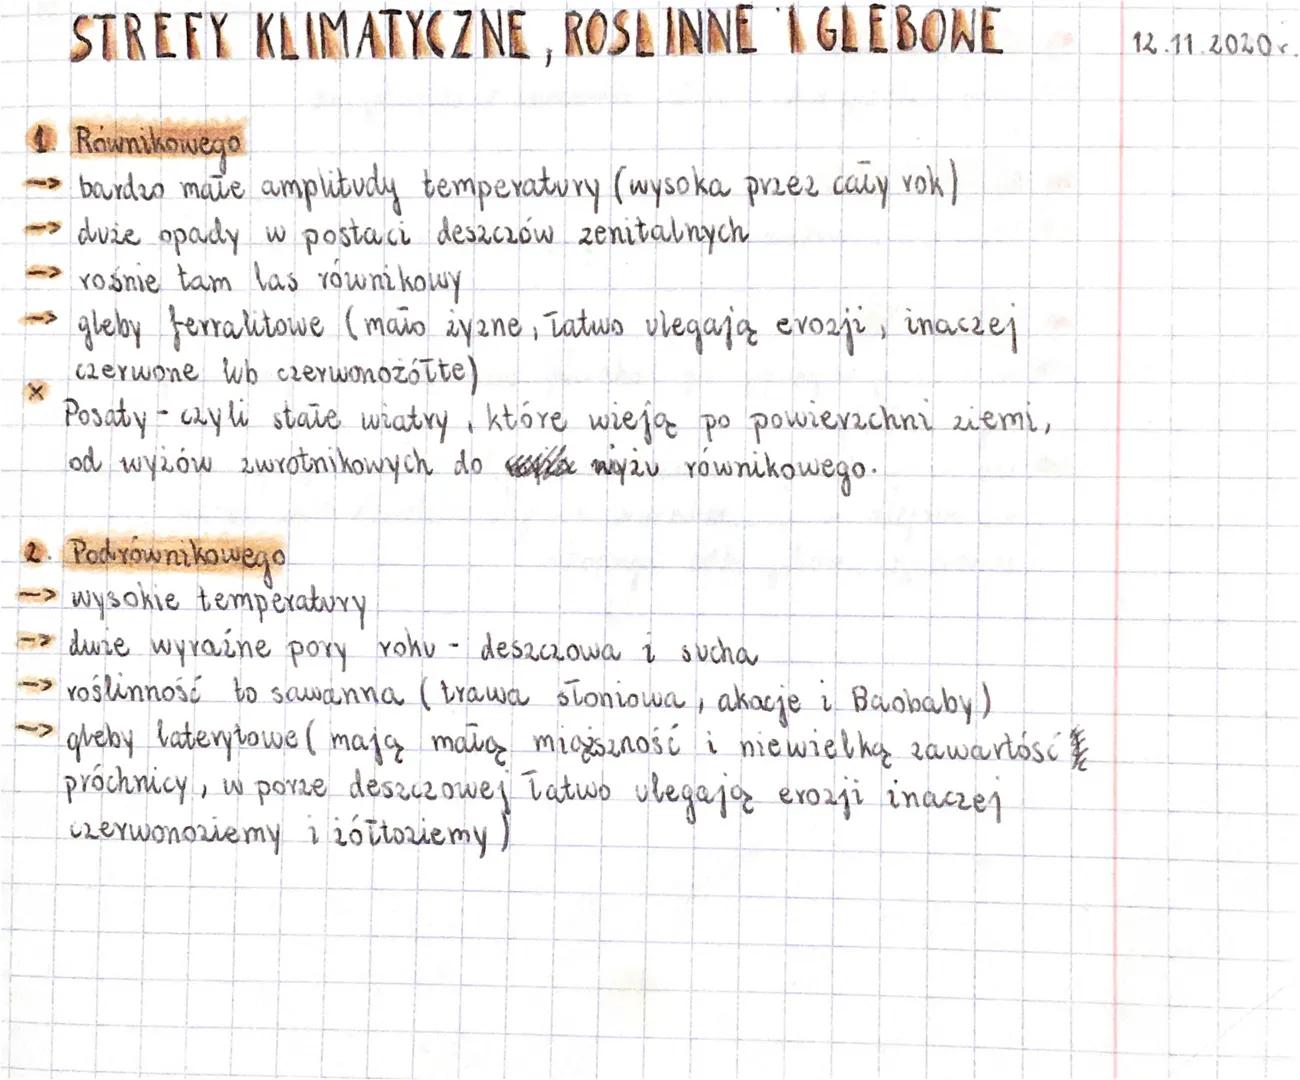 STREFY KLIMATYCZNE, ROŚLINNE I GLEBOWE
12.11.2020r.
1 Równikowego
-> bardzo małe amplitudy temperatury (wysoka przez cały rok)
-> duże opady w postaci deszczów zenitalnych
-> rośnie tam las równikowy
-> gleby ferralitowe (mało żyzne, łatwo ulegają erozji, inaczej
czerwone lub czerwonożółte)
x
Posaty - czyli stałe wiatry, które wieją po powierzchni ziemi,
od wyżów zwrotnikowych do niżu równikowego.
2. Podrównikowego
-> wysokie temperatury
-> dwie wyraźne pory roku - deszczowa i sucha
-> roślinność to sawanna (trawa słoniowa, akacje i Baobaby)
-> gleby laterytowe (mają małą miąższność i niewielką zawartość
próchnicy, w porze deszczowej łatwo ulegają erozji inaczej
czerwonoziemy i żółtoziemy)